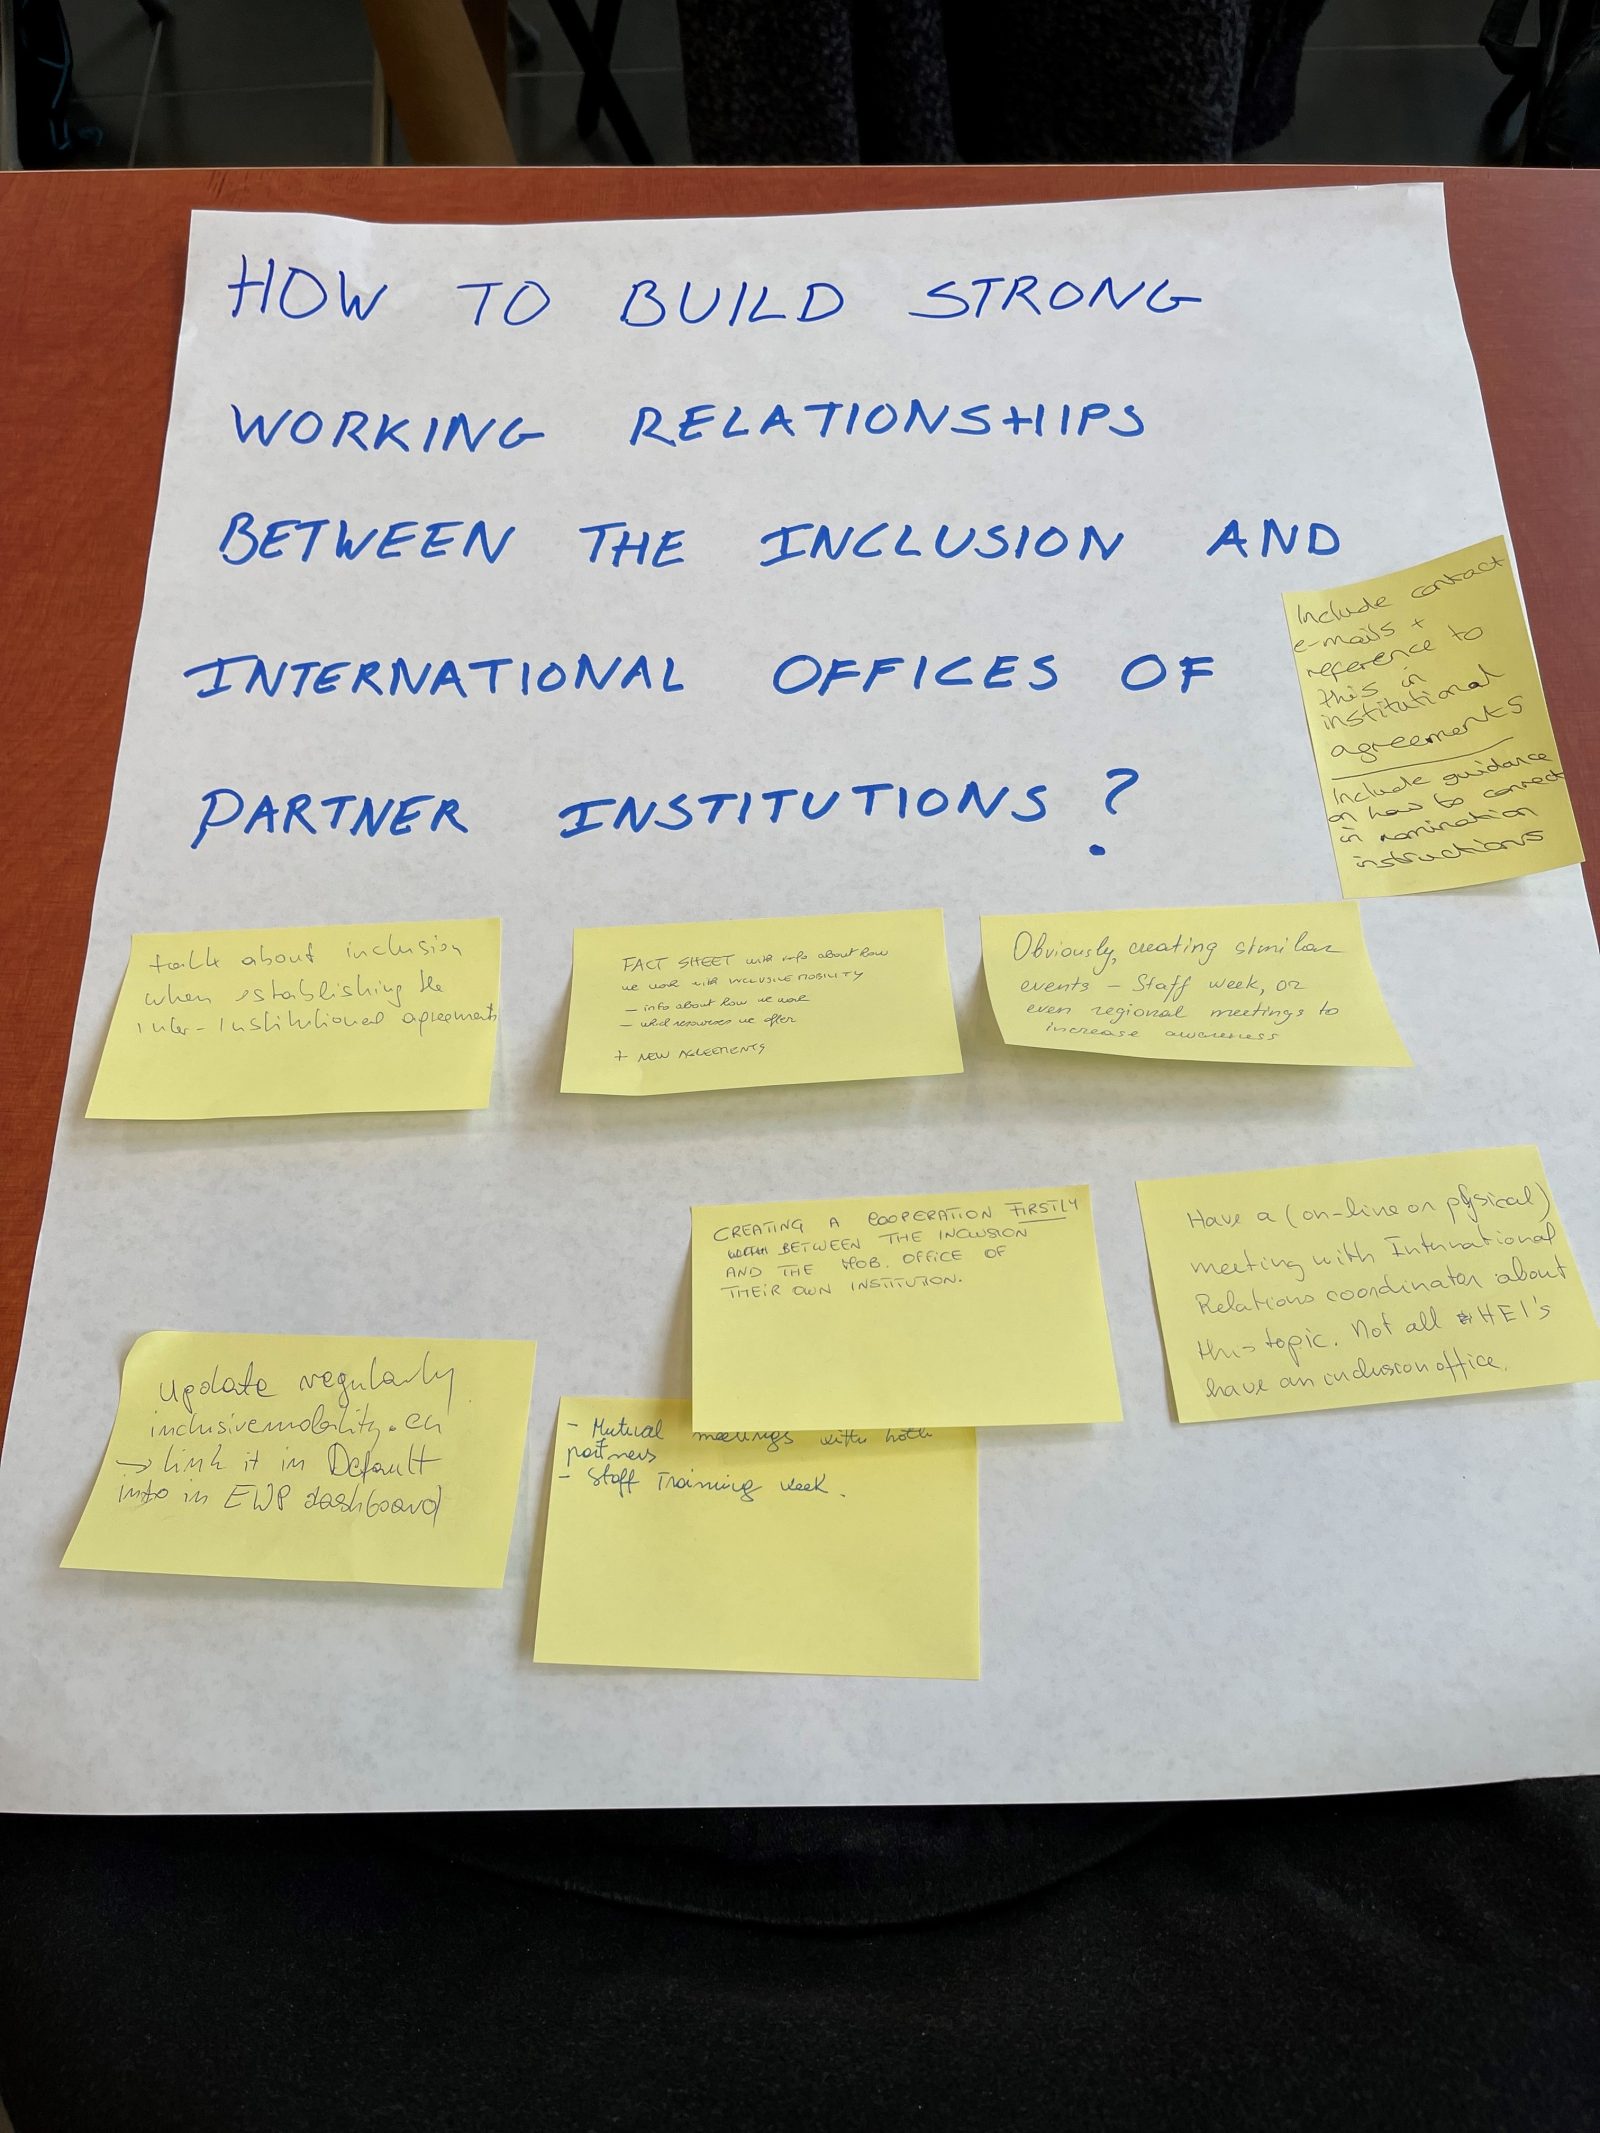 HOW TO BUILD STRONG
WORKING RELATIONSHIPS
BETWEEN THE INCLUSION AND
INTERNATIONAL OFFICES OF
PARTNER INSTITUTIONS?
Include contact
e-mails +
reference to
this in
institutional
agreements
Include guidance
on how to connect
in nomination
instructions
talk about inclusion
when establishing the
inter-institutional agreements
FACT SHEET with info about how
we work with INCLUSIVE MOBILITY
- info about how we work
- which resources we offer
+ NEW AGREEMENTS
Obviously, creating similar
events - Staff week, or
even regional meetings to
increase awareness
CREATING A COOPERATION FIRSTLY
BETWEEN THE INCLUSION
AND THE MOB. OFFICE OF
THEIR OWN INSTITUTION.
Have a (on-line or physical)
meeting with International
Relations coordinator about
this topic. Not all HEI's
have an inclusion office.
update regularly
inclusivemobility.eu
→ link it in Default
info in EWP dashboard
- Mutual meetings with both
partners
- Staff Training week.